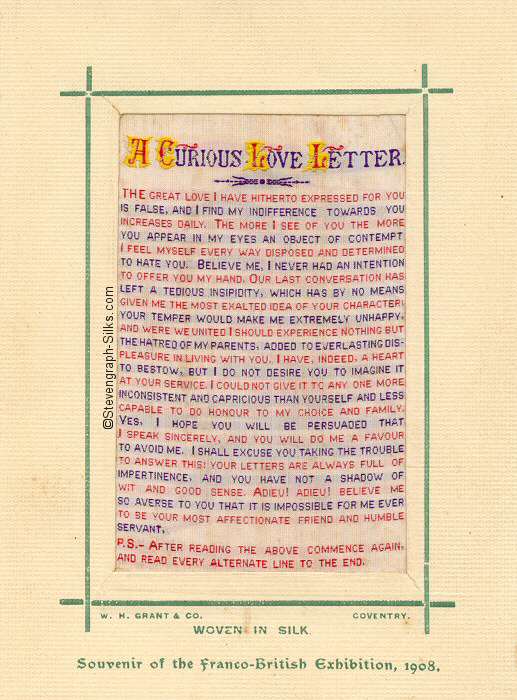 A CURIOUS LOVE LETTER.
THE GREAT LOVE I HAVE HITHERTO EXPRESSED FOR YOU
IS FALSE, AND I FIND MY INDIFFERENCE TOWARDS YOU
INCREASES DAILY. THE MORE I SEE OF YOU THE MORE
YOU APPEAR IN MY EYES AN OBJECT OF CONTEMPT
I FEEL MYSELF EVERY WAY DISPOSED AND DETERMINED
TO HATE YOU. BELIEVE ME, I NEVER HAD AN INTENTION
TO OFFER YOU MY HAND. OUR LAST CONVERSATION HAS
LEFT A TEDIOUS INSIPIDITY, WHICH HAS BY NO MEANS
GIVEN ME THE MOST EXALTED IDEA OF YOUR CHARACTER;
YOUR TEMPER WOULD MAKE ME EXTREMELY UNHAPPY,
AND WERE WE UNITED I SHOULD EXPERIENCE NOTHING BUT
THE HATRED OF MY PARENTS, ADDED TO EVERLASTING DIS-
PLEASURE IN LIVING WITH YOU. I HAVE, INDEED, A HEART
TO BESTOW, BUT I DO NOT DESIRE YOU TO IMAGINE IT
AT YOUR SERVICE. I COULD NOT GIVE IT TO ANY ONE MORE
INCONSISTENT AND CAPRICIOUS THAN YOURSELF AND LESS
CAPABLE TO DO HONOUR TO MY CHOICE AND FAMILY.
YES, I HOPE YOU WILL BE PERSUADED THAT
I SPEAK SINCERELY, AND YOU WILL DO ME A FAVOUR
TO AVOID ME. I SHALL EXCUSE YOU TAKING THE TROUBLE
TO ANSWER THIS: YOUR LETTERS ARE ALWAYS FULL OF
IMPERTINENCE, AND YOU HAVE NOT A SHADOW OF
WIT AND GOOD SENSE. ADIEU! ADIEU! BELIEVE ME
SO AVERSE TO YOU THAT IT IS IMPOSSIBLE FOR ME EVER
TO BE YOUR MOST AFFECTIONATE FRIEND AND HUMBLE
SERVANT,
P.S.- AFTER READING THE ABOVE COMMENCE AGAIN,
AND READ EVERY ALTERNATE LINE TO THE END.
©Stevengraph-Silks.com
W. H. GRANT & CO. COVENTRY.
WOVEN IN SILK.
Souvenir of the Franco-British Exhibition, 1908.